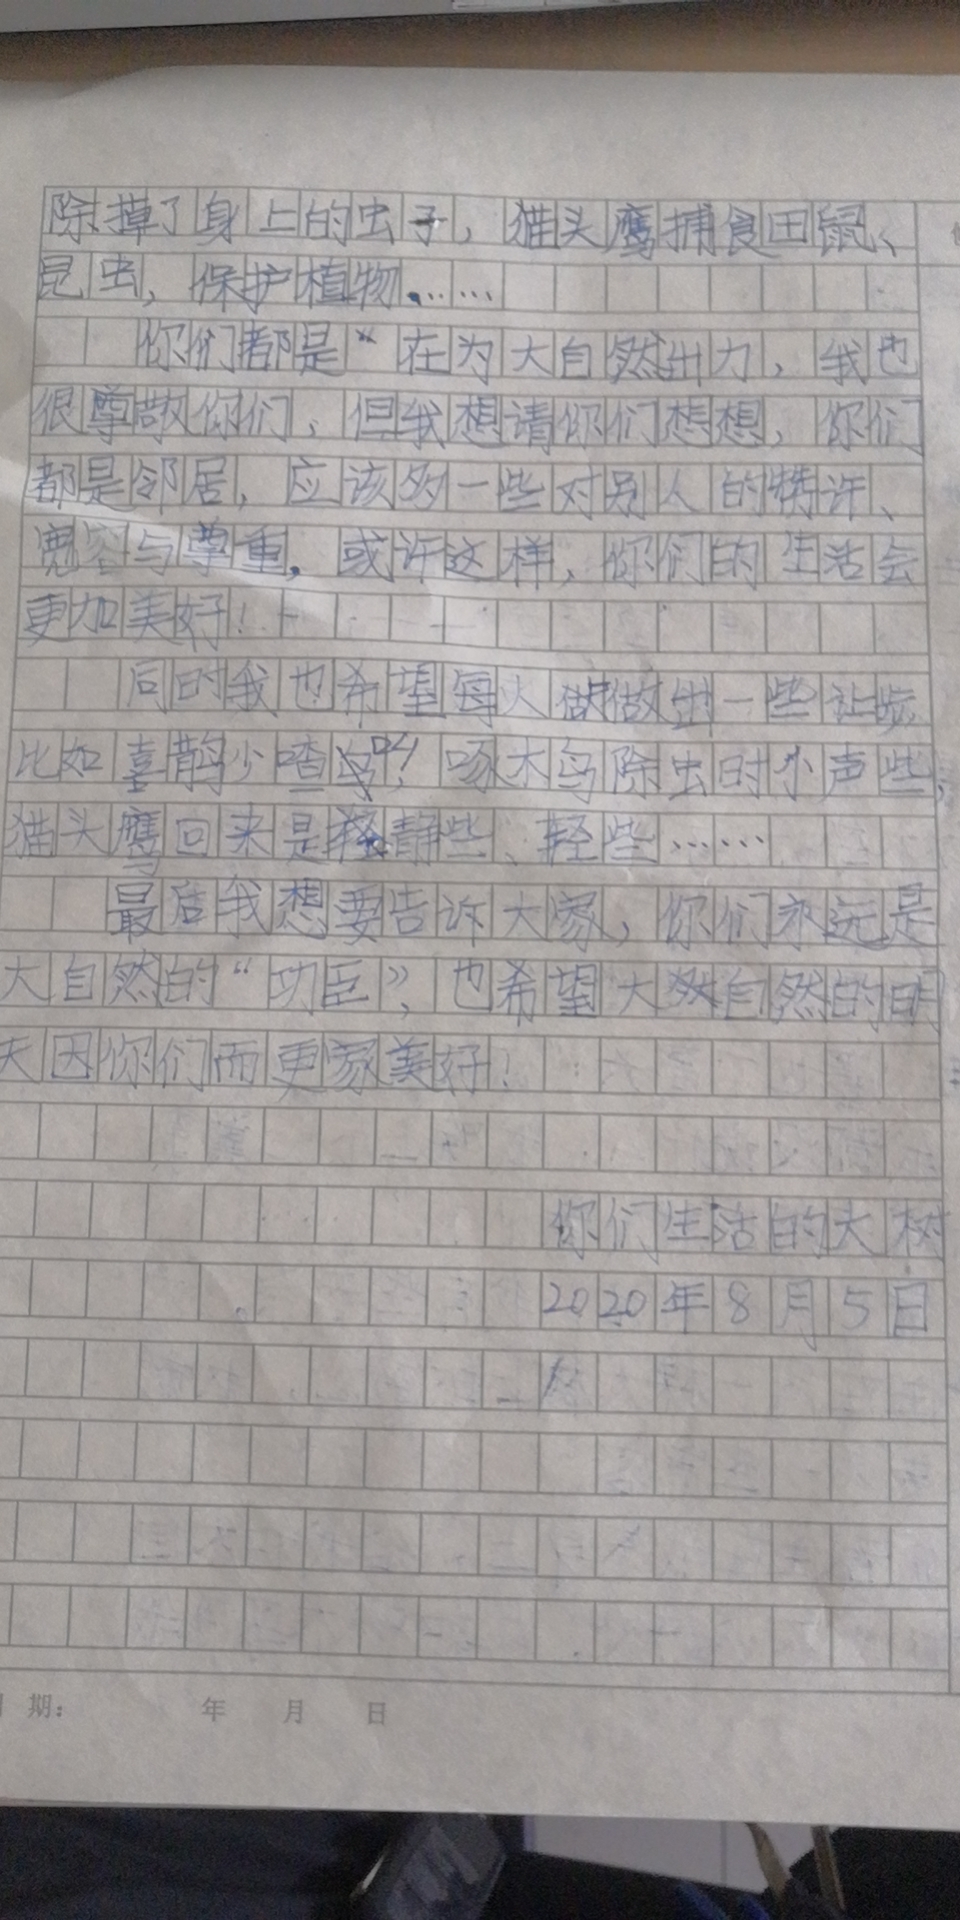 除掉了身上的虫子，猫头鹰捕食田鼠、
昆虫，保护植物……
你们都是“在为大自然出力，我也
很尊敬你们，但我想请你们想想，你们
都是邻居，应该多一些对别人的
宽容与尊重，或许这样，你们的生活会
更加美好！
同时我也希望每人做出一些让步
比如喜鹊少喳叫！啄木鸟除虫时小声些，
猫头鹰回来是静些、轻些……
最后我想要告诉大家，你们永远是
大自然的“功臣”，也希望大自然的明
天因你们而更家美好！
你们生活的大树
2020年8月5日
期：　年　月　日